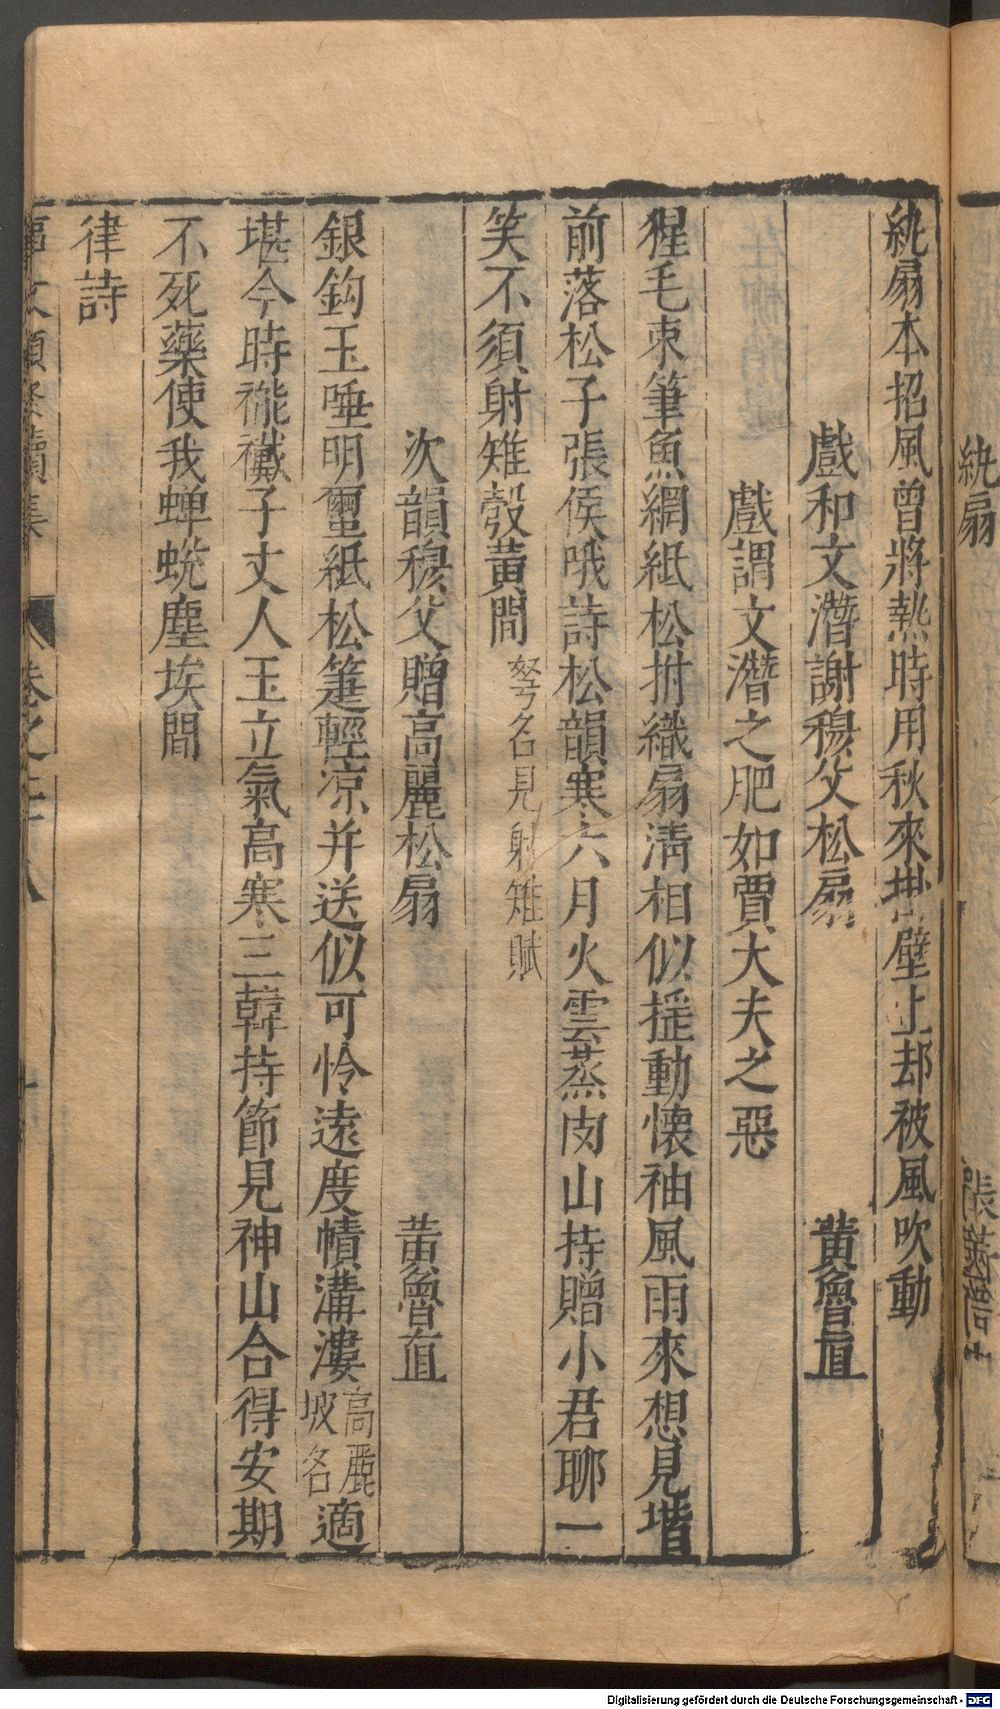 紈扇
張
紈扇本招風曾將熱時用秋來掛壁上却被風吹動
戲和文潛謝穆父松扇 黄魯直
戲謂文潛之肥如賈大夫之惡
猩毛束筆魚網紙松拊織扇清相似揺動懷袖風雨來想見堦
前落松子張侯哦詩松韻寒六月火雲蒸肉山持贈小君聊一
笑不須射雉彀黄間弩名見射雉賦
次韻穆父贈高麗松扇 黄魯直
銀鈎玉唾明璽紙松箑輕凉并送似可怜遠度幘溝漊高麗坡名適
堪今時褦襶子丈人玉立氣高寒三韓持節見神山合得安期
不死藥使我蝉蜕塵埃間
律詩
事文類聚續集 卷之二十八
Digitalisierung gefördert durch die Deutsche Forschungsgemeinschaft - DFG